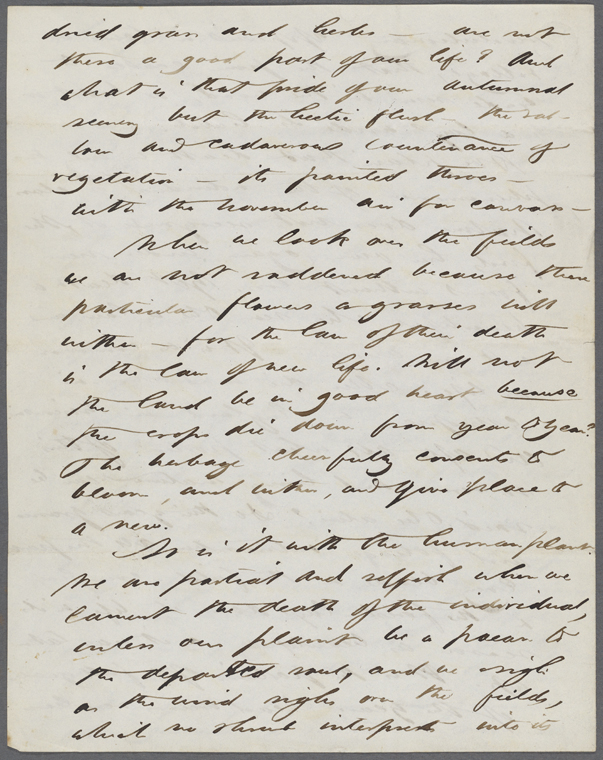 dried grass and herbs — are not
these a good part of our life? And
what is that pride of our autumnal
scenery but the hectic flush — the sal-
low and cadaverous countenance of
vegetation — its painted throes —
with the November air for canvas —
When we look over the fields
we are not saddened because these
particular flowers or grasses will
wither — for the law of their death
is the law of new life. Will not
the land be in good heart because
the crops die down from year to year?
The herbage cheerfully consents to
bloom, and wither, and give place to
a new.
So is it with the human plant.
We are partial and selfish when we
lament the death of the individual,
unless our plaint be a paean to
the departed soul, and we sigh
as the wind sighs over the fields,
which no shrub interprets into its